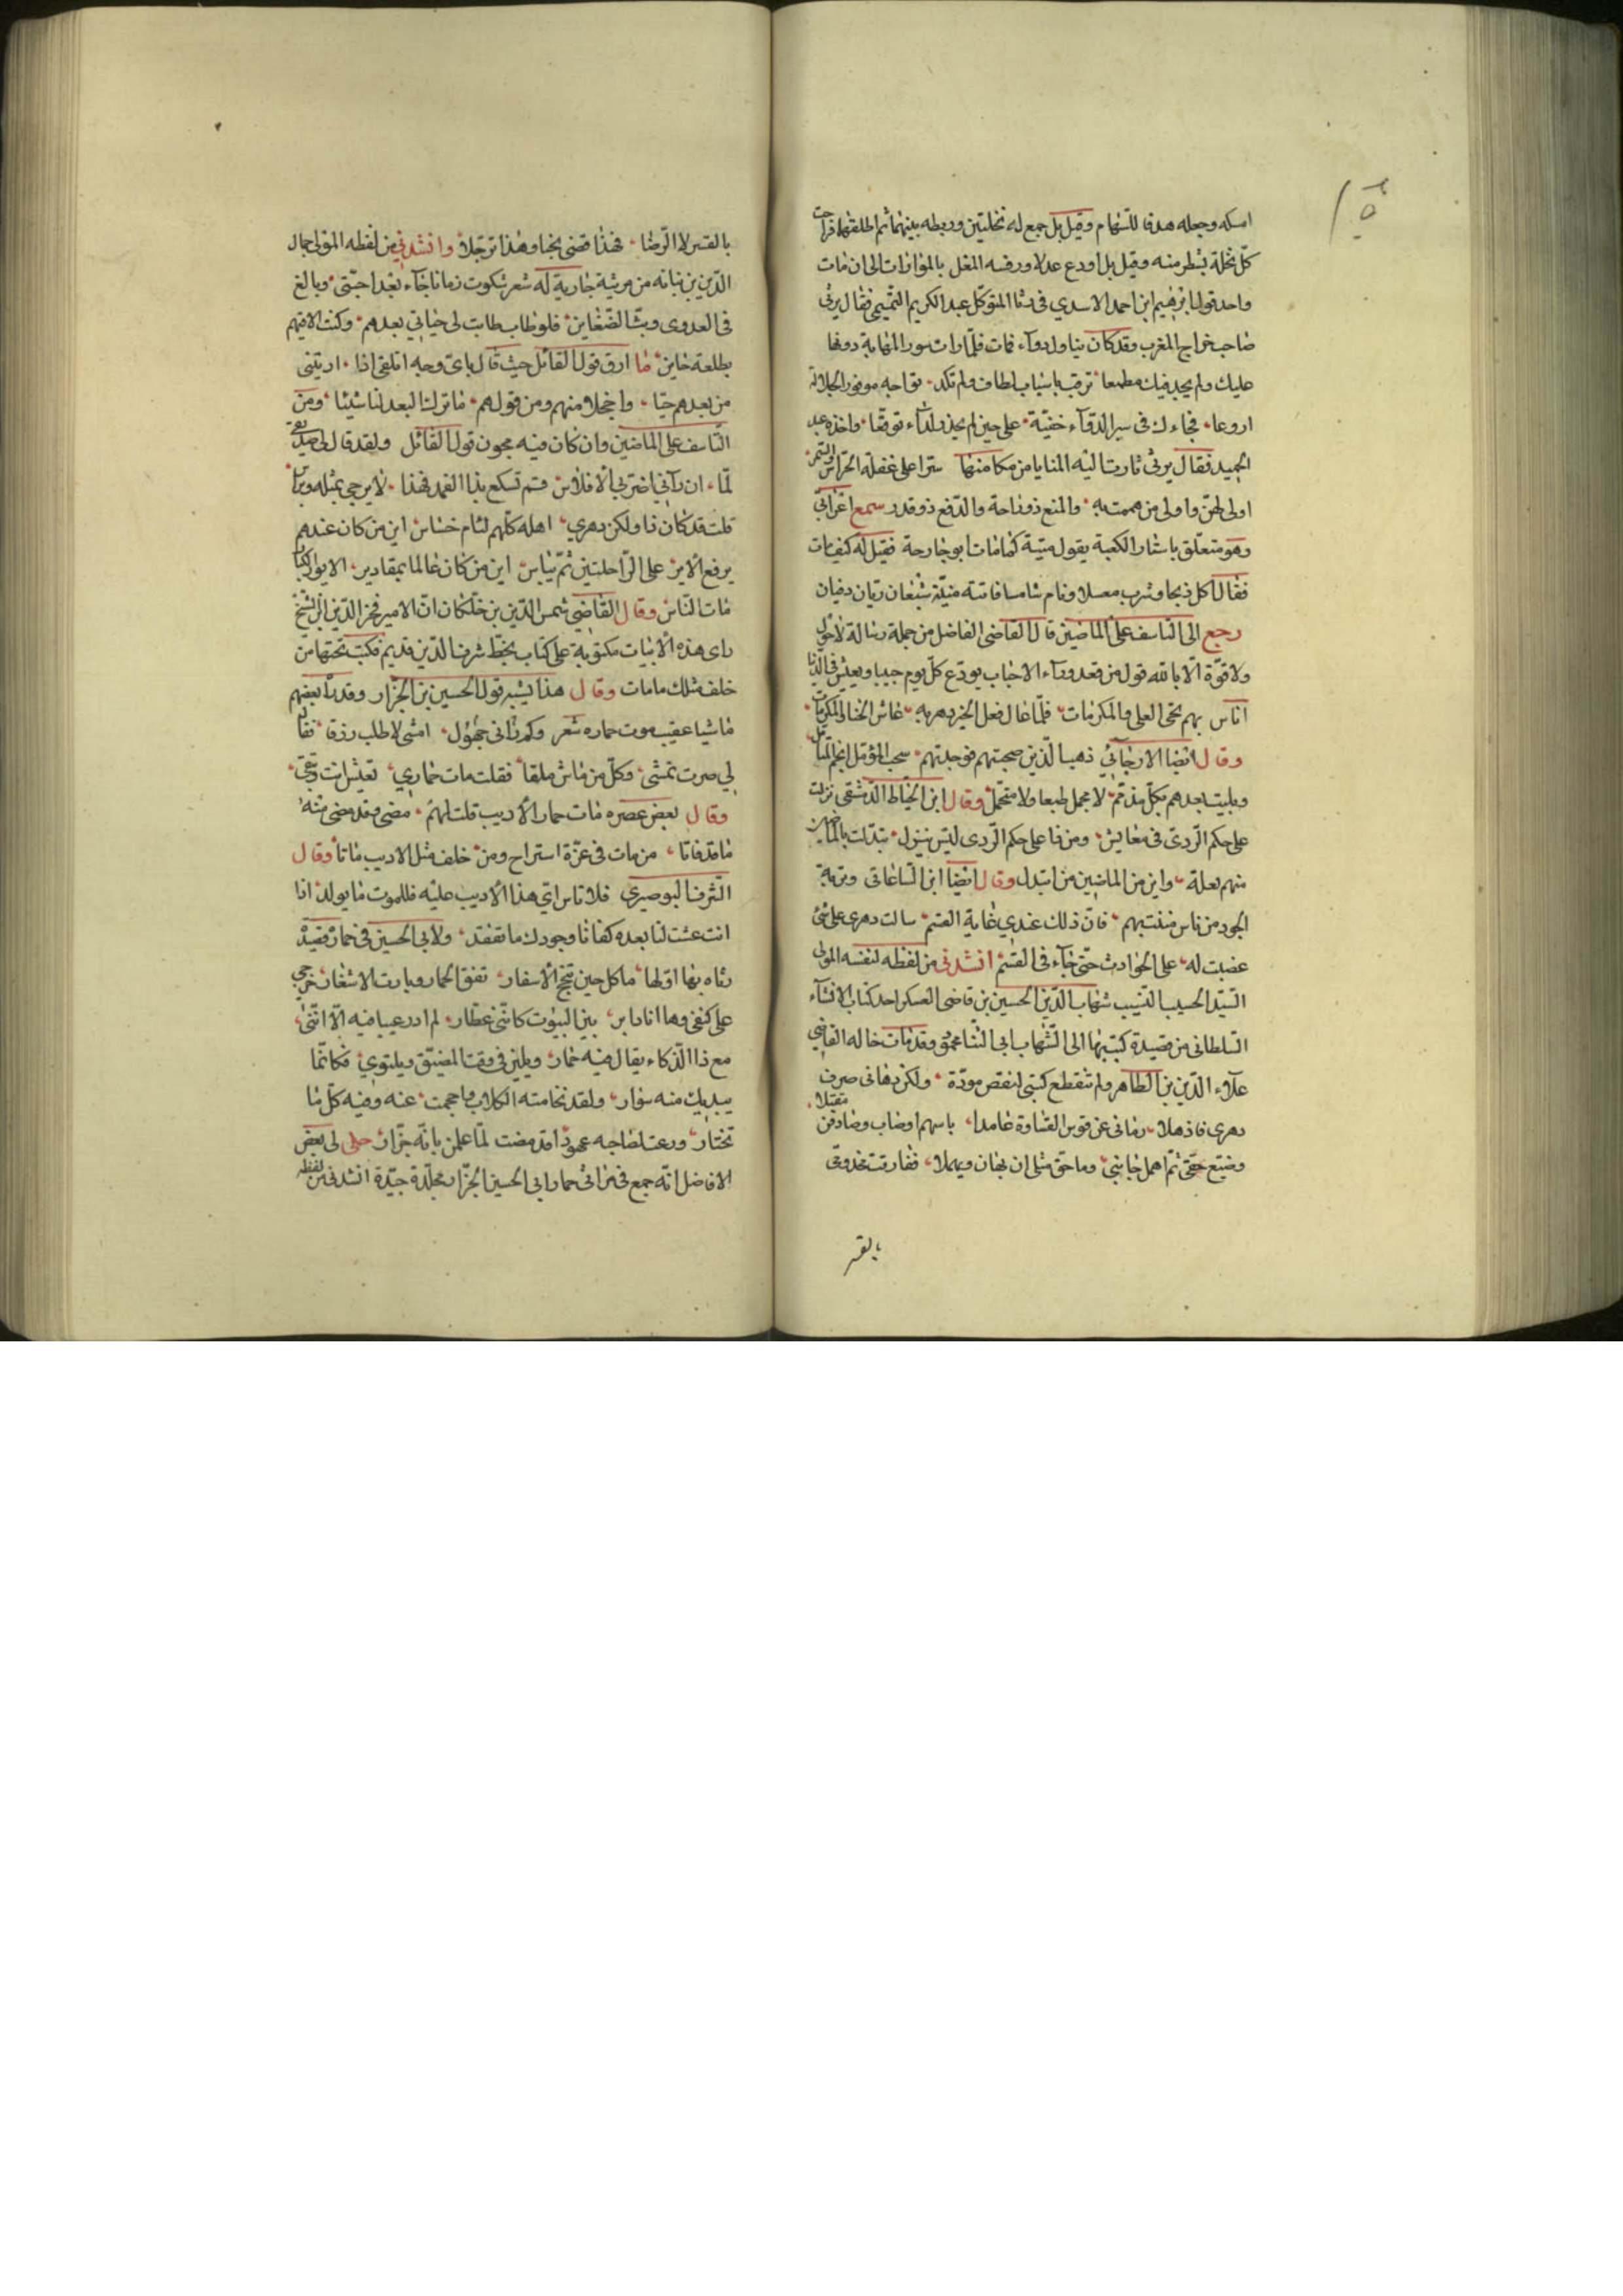 امسكه وجعله هدفا للسهام وقيل بل جمع له نخلتين وربطه بينهما ثم اطلقهما فراحت
كل نخلة بشطر منه وقيل بل اودع عدلا ورفسه البغل بالموازات الى ان مات
واحد قول ابرهيم ابن احمد الاسدي في رثا المتوكل عبد الكريم التميمي فقال يرثي
صاحب خراج المغرب وقد كان يناول دواء فمات فلما رات سور المهابة دونها
عليك ولم يجد فيك مطمعا ترقب باسباب لطاف ولم تكد تواجه موفور الجلالة
اروعا فجاءك في سر الدواء خفية على حين لم يحذر لداء توقعا واخذه عبد
المجيد فقال يرثي ثارت اليه المنايا من مكامنها سترا على غفلة الحراس والسمر
اولى لهن واولى من هممت به والمنع ذو راحة والدفع ذو قدر سمع اعرابي
وهو متعلق باستار الكعبة يقول ميتة كما مات ابو خارجة فقيل له كيف مات
فقال اكل ذبحا وشرب معسلا ونام شامسا فاتته منيته شبعان ريان دفيان
رجع الى التاسف على الماضين قال القاضي الفاضل من جملة رسالة لا حول
ولا قوة الا بالله قول من قعد وراء الاحباب يودع كل يوم حبيبا ويعيش في الدنيا
اناس بهم تحيى العلى والمكرمات فلما غال فعل الخير دهر به عاش الخنا المكرمات
وقال ايضا الارجاني ذهب الذين صحبتهم فوجدتهم سحب المؤمل انجم المتامل
وبليت بعدهم بكل مذمم لا مجمل طبعا ولا متجمل وقال ابن الخياط الدمشقي نزلت
على حكم الردى في معاشر ومن فا على حكم الردى ليس ينزل تبدلت بالماضين
منهم تعلة واين من الماضين من اتبدل وقال ايضا ابن الساعاتي وتربة
الجود من ناس فتنت بهم فان ذلك عندي غاية القسم سالت دهري على شئ
غضبت له على الحوادث حتى جاء في القسم انشدني من لفظه لنفسه المولى
السيد الحسيب النسيب شهاب الدين الحسين بن قاضي العسكر احد كتاب الانشاء
السلطاني من قصيدة كتب بها الى الشهاب ابي الثنا محمود وقد مات خاله القاضي
علاء الدين بن الطاهر ولم تنقطع كتبي لنقص مودة ولكن دهاني صرف
دهري فاذهلا رماني عن قوس القساوة عامدا باسهم اوصاب وصادفن مقتلا
وضيع حقي ثم اهمل جانبي وما حق مثلي ان يهان ويهملا ففارقت مخدومي
بالقسر
بالقسر لا الرضا فهذا قضى نحبا وهذا ترحلا وانشدني من لفظه المولى جمال
الدين بن نباته من مرثية جارية له شعر شكوت زمانا جاء بعد احبتي وبالغ
في العدوى وبث الضغاين فلو طاب طابت لي حياتي بعدهم وكنت الاقيهم
بطلعة خاين ما ارق قول القائل حيث قال باي وجه اتلقى اذا اريتني
من بعدهم حيا واخجلا منهم ومن قولهم ما ترك البعد لنا شيئا ومن
التاسف على الماضين وان كان فيه مجون قول القائل ولقد قال لي صديقي
لما ان رآني اضربي الافلاس قم تسكع بذا الغمد فهذا لا يرجى بمثله
قلت قد كان ذا ولكن دهري اهله كلهم لئام خساس اين من كان عندهم
يرفع الاير على الراحلتين ثم يباس اين من كان عالما بمقادير الايور الكبار
مات الناس وقال القاضي شمس الدين بن خلكان ان الامير فخر الدين ابن الشيخ
راى هذه الابيات مكتوبة على كتاب بخط شرف الدين قديم فكتب تحتها من
خلف مثلك ما مات وقال هذا يشبه قول الحسين بن الجزار وقد راه بعضهم
ماشيا عقيب موت حماره شعر وكم رآني جهول امشي لاطلب رزقا فقال
لي صرت تمشي وكل من ماش ملقا فقلت مات حماري تعيش انت وتبقى
وقال بعض عصره مات حمار الاديب قلت لهم مضى وقد مضى منه
ما قد فاتا من مات في عزة استراح ومن خلف مثل الاديب ماتا وقال
الشرف البوصيري فلا تاس اي هذا الاديب عليه فللموت ما يولد اذا
انت عشت لنا بعده كفانا وجودك ما نفقد ولابي الحسين في حماره قصيدة
رثاه بها اولها ما كل حين تنجح الاسفار نفق الحمار وبارت الاشعار خرجي
على كتفي وها انا دابر بين البيوت كانني عطار لم ادر عيبا فيه الا انني
مع ذا الذكاء يقال فيه حمار ويلين في وقت المضيق ويلتوي فكانما
بيديك منه سوار ولقد تحامته الكلاب واحجمت عنه وفيه كل ما
تختار ورعت لصاحبه عهودا قد مضت لما علمن بانه جزار حكى لي بعض
الافاضل انه جمع في مراثي حمار ابي الحسين الجزار مجلدة جيدة انشدني من لفظه